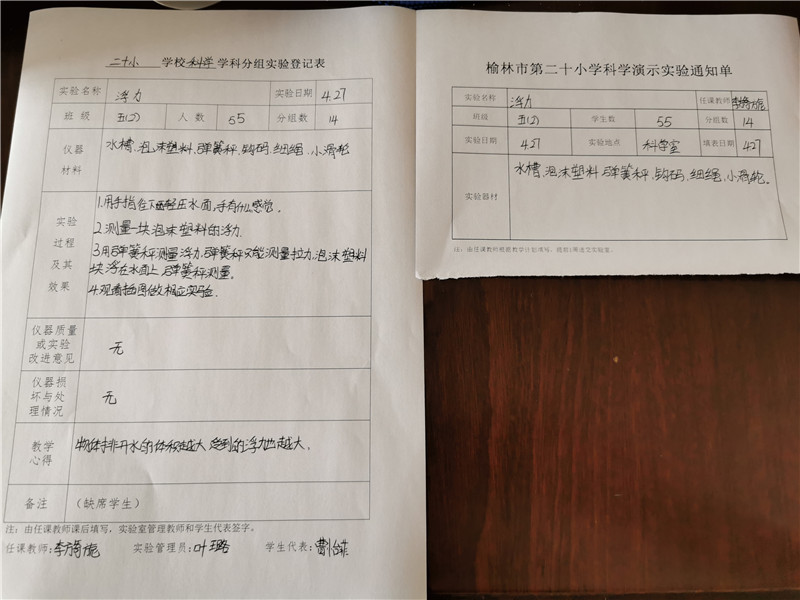 二十小 学校 科学 学科分组实验登记表
实验名称 浮力 实验日期 4.27
班级 五(2) 人数 55 分组数 14
仪器材料 水槽、泡沫塑料、弹簧秤、钩码、细绳、小滑轮
实验过程及其效果
1.用手指在下面轻压水面,手有什么感觉。
2.测量一块泡沫塑料的浮力.
3.用弹簧秤测量浮力,弹簧秤只能测量拉力,泡沫塑料
块浮在水面上,弹簧秤测量。
4.观看插图做相应实验.
仪器质量或实验改进意见 无
仪器损坏与处理情况 无
教学心得 物体排开水的体积越大,受到的浮力也越大。
备注 (缺席学生)
注:由任课教师课后填写,实验室管理教师和学生代表签字。
任课教师: 实验管理员:叶璐 学生代表:
榆林市第二十小学科学演示实验通知单
实验名称 浮力 任课教师
班级 五(2) 学生数 55 分组数 14
实验日期 4.27 实验地点 科学室 填表日期 4.27
实验器材 水槽、泡沫塑料、弹簧秤、钩码、细绳、小滑轮。
注:由任课教师根据教学计划填写,提前1周送交实验室。